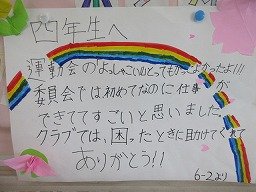 四年生へ
運動会のよっしゃこいとってもかっこよかったよ!!!
委員会では初めてなのに仕事が
できててすごいと思いました。
クラブでは、困ったときに助けてくれて
ありがとう!!
6-2より